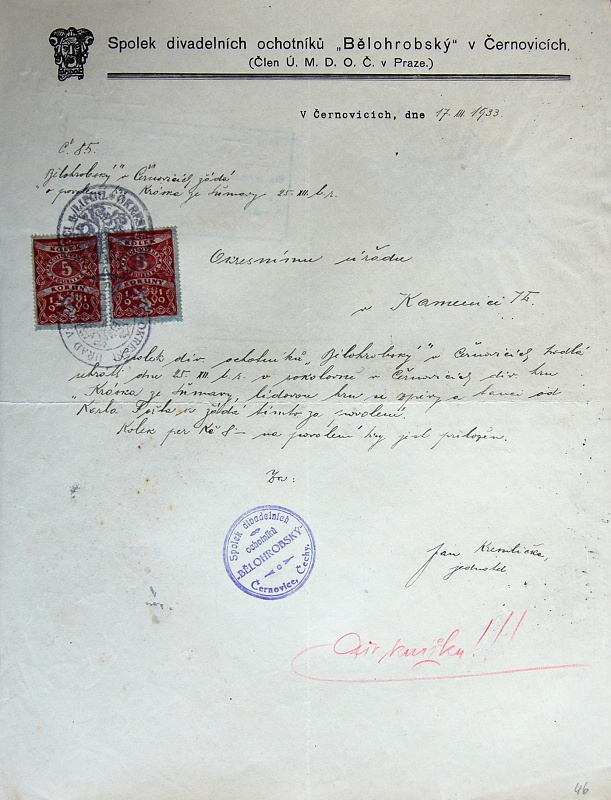 Spolek divadelních ochotníků „Bělohrobský" v Černovicích.
(Člen Ú. M. D. O. Č. v Praze.)
V Černovicích, dne 17. III. 1933.
Č 85.
„Bělohrobský" v Černovicích žádá
o povolení hry Kráska ze Šumavy 25. XII. b. r.
KOLEK
5
KORUN
1919
KOLEK
3
KORUNY
1919
Okresnímu úřadu
v Kamenici n/L.
Spolek div. ochotníků „Bělohrobský" v Černovicích hodlá
sehráti dne 25. XII. b. r. v sokolovně v Černovicích div. hru
„Kráska ze Šumavy, lidovou hru se zpěvy a tanci od
Karla a žádá tímto za povolení.
Kolek per Kč 8 — na povolení hry jest přiložen.
Za:
Spolek divadelních
ochotníků
„BĚLOHROBSKÝ"
Černovice, Čechy.
Jan Kremlička,
jednatel
46